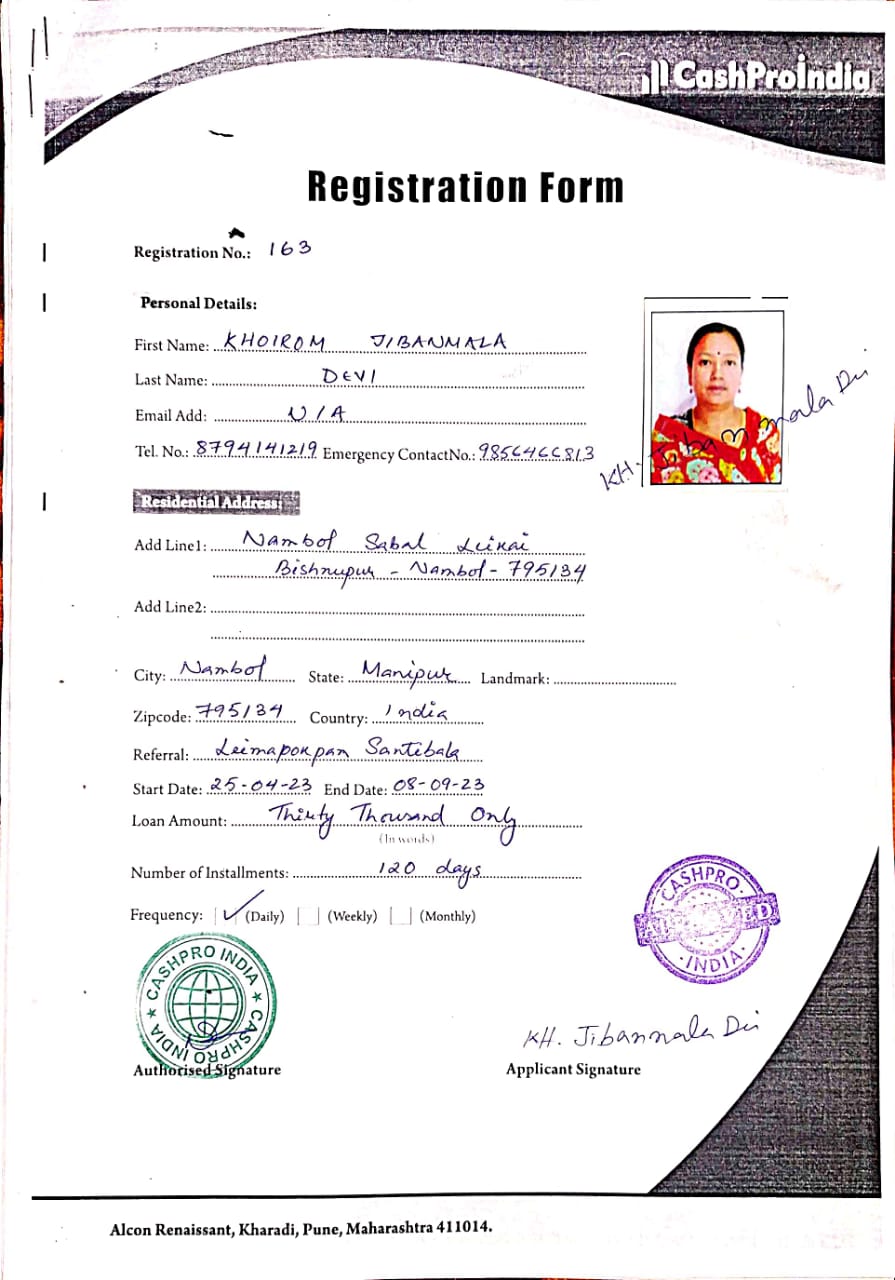 CashProIndia
Registration Form
Registration No.: 163
Personal Details:
First Name: KHOIROM JIBANMALA
Last Name: DEVI
Email Add: N/A
Tel. No.: 8794141219 Emergency ContactNo.: 9856466813
KH. Jibanmala Devi
Residential Address:
Add Line1: Nambol Sabal Leikai
Bishnupur - Nambol - 795134
Add Line2:
City: Nambol State: Manipur Landmark:
Zipcode: 795134 Country: India
Referral: Leimapokpam Santibala
Start Date: 25-04-23 End Date: 08-09-23
Loan Amount: Thirty Thousand Only
(In words)
Number of Installments: 120 days
Frequency: ✓ (Daily) (Weekly) (Monthly)
CASHPRO
APPROVED
INDIA
CASHPRO INDIA ★ CASHPRO INDIA ★
KH. Jibanmala Devi
Authorised Signature Applicant Signature
Alcon Renaissant, Kharadi, Pune, Maharashtra 411014.